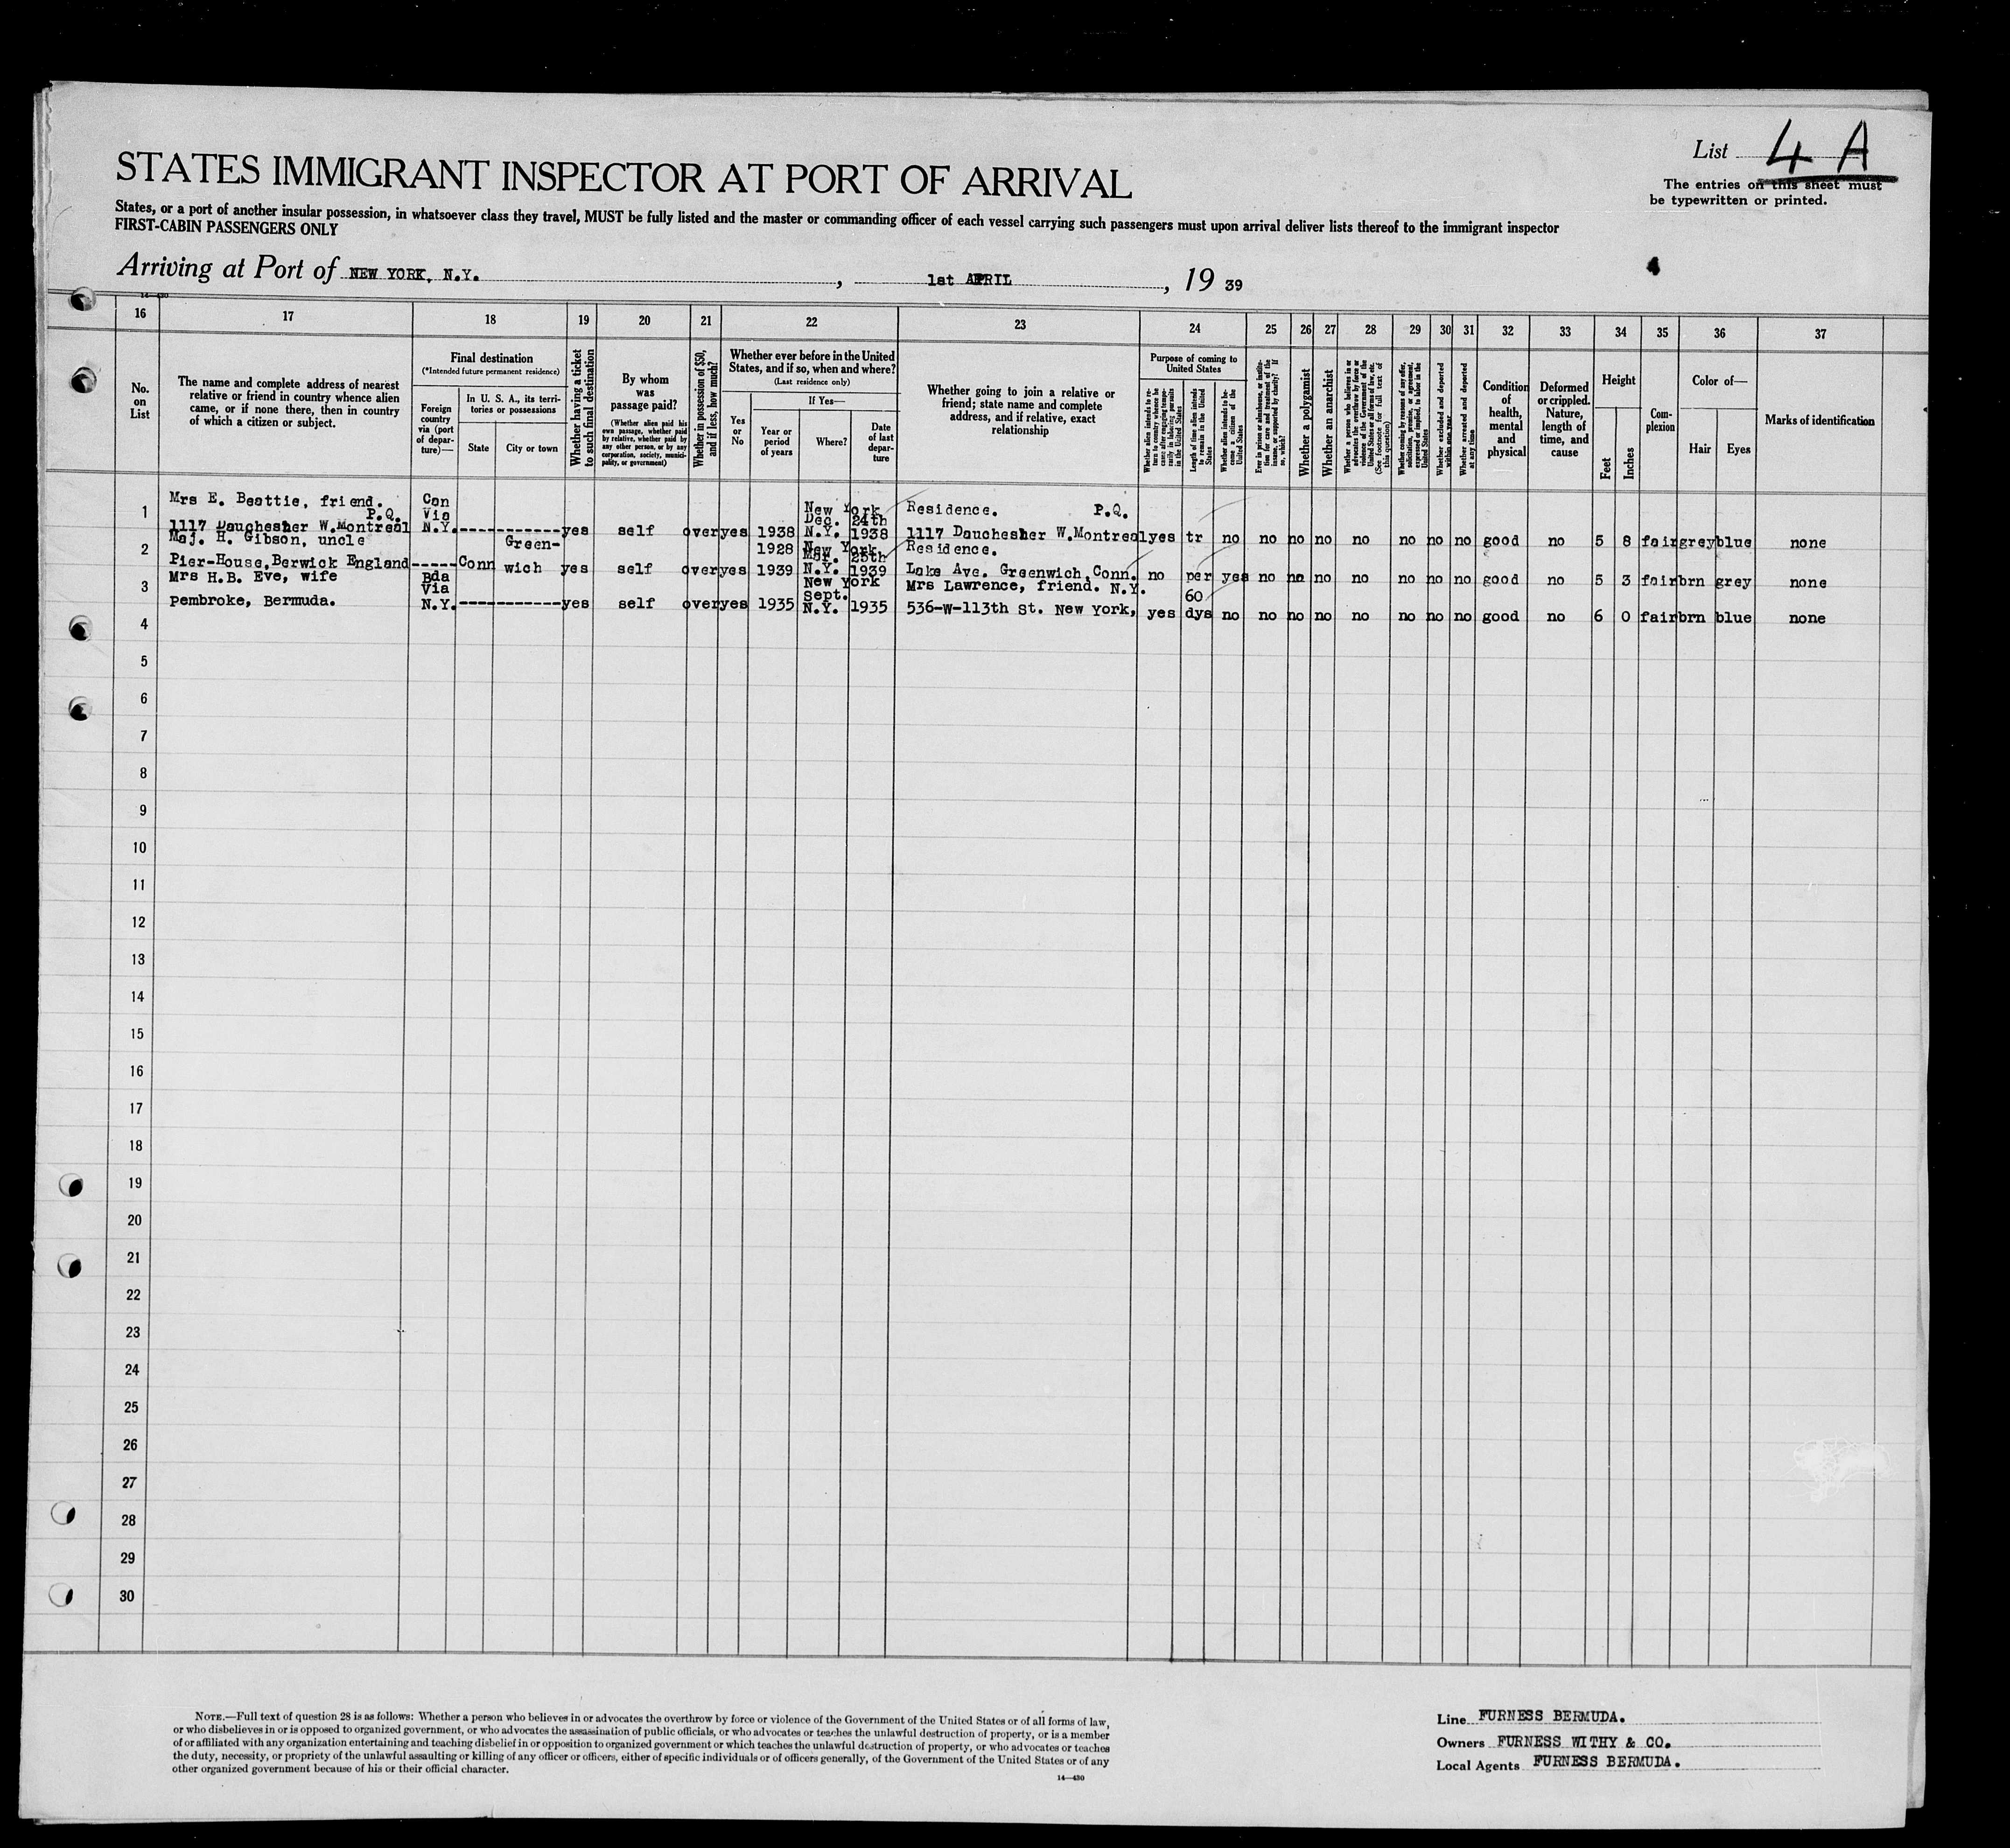 List 4 A
The entries on this sheet must
be typewritten or printed.
STATES IMMIGRANT INSPECTOR AT PORT OF ARRIVAL
States, or a port of another insular possession, in whatsoever class they travel, MUST be fully listed and the master or commanding officer of each vessel carrying such passengers must upon arrival deliver lists thereof to the immigrant inspector
FIRST-CABIN PASSENGERS ONLY
Arriving at Port of NEW YORK, N.Y. , 1st APRIL , 19 39
16 17 18 19 20 21 22 23 24 25 26 27 28 29 30 31 32 33 34 35 36 37
No. on List
The name and complete address of nearest relative or friend in country whence alien came, or if none there, then in country of which a citizen or subject.
Final destination
(*Intended future permanent residence)
Foreign country via (port of departure)—
In U. S. A., its territories or possessions
State
City or town
Whether having a ticket to such final destination
By whom was passage paid?
(Whether alien paid his own passage, whether paid by relative, whether paid by any other person, or by any corporation, society, municipality, or government)
Whether in possession of $50, and if less, how much?
Whether ever before in the United States, and if so, when and where?
(Last residence only)
Yes or No
If Yes—
Year or period of years
Where?
Date of last departure
Whether going to join a relative or friend; state name and complete address, and if relative, exact relationship
Purpose of coming to United States
Whether alien intends to return to country whence he came after engaging temporarily in laboring pursuits in the United States
Length of time alien intends to remain in the United States
Whether alien intends to become a citizen of the United States
Ever in prison or almshouse, or institution for care and treatment of the insane, or supported by charity? If so, which?
Whether a polygamist
Whether an anarchist
Whether a person who believes in or advocates the overthrow by force or violence of the Government of the United States or all forms of law, etc. (See footnote for full text of this question)
Whether coming by reason of any offer, solicitation, promise, or agreement, expressed or implied, to labor in the United States
Whether excluded and deported within one year
Whether arrested and deported at any time
Condition of health, mental and physical
Deformed or crippled. Nature, length of time, and cause
Height
Feet
Inches
Complexion
Color of—
Hair
Eyes
Marks of identification
1 Mrs E. Beattie, friend. P.Q.
1117 Dauchesher W.Montreal Can Via N.Y. yes self over yes 1938 New York N.Y. Dec. 24th 1938 Residence. P.Q.
1117 Dauchesher W.Montreal yes tr no no no no no no no no good no 5 8 fair grey blue none
2 Maj. H. Gibson, uncle
Pier-House, Berwick England Conn Green-wich yes self over yes 1928 1939 New York N.Y. Mar. 25th 1939 Residence.
Lake Ave. Greenwich, Conn. no per yes no no no no no no no good no 5 3 fair brn grey none
3 Mrs H.B. Eve, wife
Pembroke, Bermuda. Bda Via N.Y. yes self over yes 1935 New York N.Y. Sept. 1935 Mrs Lawrence, friend. N.Y.
536-W-113th St. New York, yes 60 dys no no no no no no no no good no 6 0 fair brn blue none
4
5
6
7
8
9
10
11
12
13
14
15
16
17
18
19
20
21
22
23
24
25
26
27
28
29
30
NOTE.—Full text of question 28 is as follows: Whether a person who believes in or advocates the overthrow by force or violence of the Government of the United States or of all forms of law,
or who disbelieves in or is opposed to organized government, or who advocates the assassination of public officials, or who advocates or teaches the unlawful destruction of property, or is a member
of or affiliated with any organization entertaining and teaching disbelief in or opposition to organized government or which teaches the unlawful destruction of property, or who advocates or teaches
the duty, necessity, or propriety of the unlawful assaulting or killing of any officer or officers, either of specific individuals or of officers generally, of the Government of the United States or of any
other organized government because of his or their official character.
14—430
Line FURNESS BERMUDA.
Owners FURNESS WITHY & CO.
Local Agents FURNESS BERMUDA.